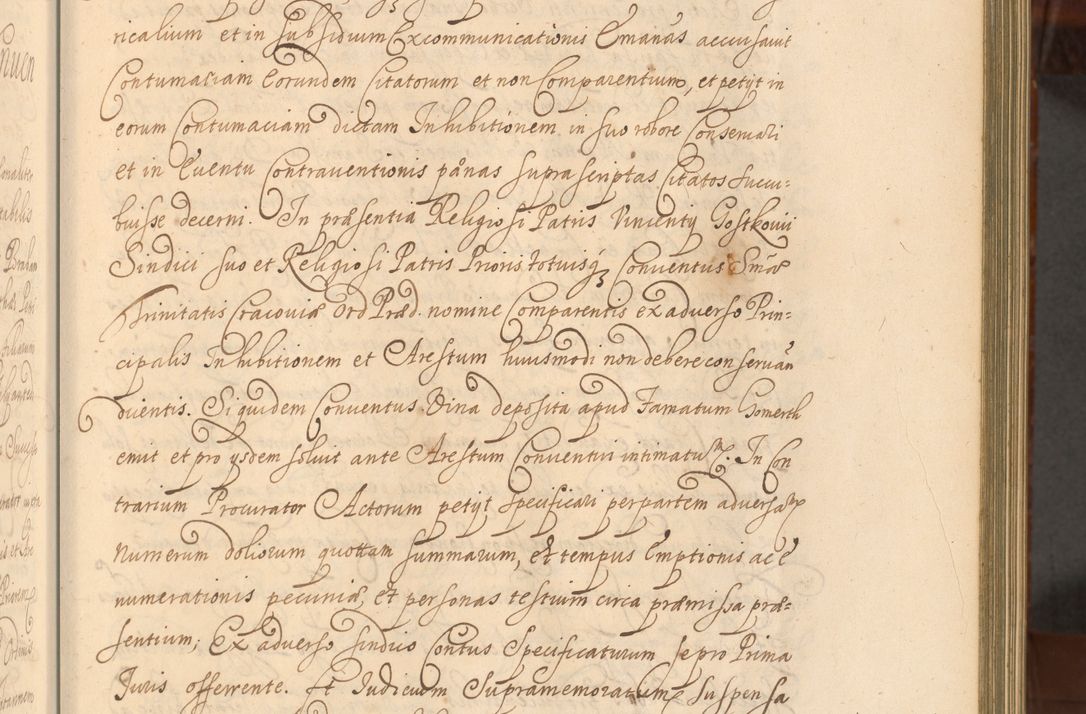 ricalium et in subsidium Excommunicationis Emanas accusavit
Contumaciam Eorundem Citatorum et non Comparentium, et petijt in
eorum Contumaciam dictam Inhibitionem in suo robore Conservari
et in Euentu Contrauentionis pænas suprascriptas Citatos succu:
buisse decerni. In præsentia Religiosi Patris Vincentij Gostkovii
Sindici suo et Religiosi Patris Prioris totiusq Conventus Smæ
Trinitatis Cracoviæ Ord Præd. nomine Comparentis ex adverso Prin:
cipalis Inhibitionem et Arestum huiusmodi non debere conseruari
ducentis. Siquidem Conuentus Vina deposita apud Famatum Gomerth
emit et pro ijsdem soluit ante Arestum Conventui intimatum. In Con
trarium Procurator Actorum petijt specificari per partem adversam
numerum doliorum quottam summarum, et tempus Emptionis ac e
numerationis pecuniæ, et personas testium circa præmissa præ:
sentium; Ex adverso sindico Contus Specificaturum se pro Prima
Juris offerrente. Et Judicium Supramemoratum suspensa